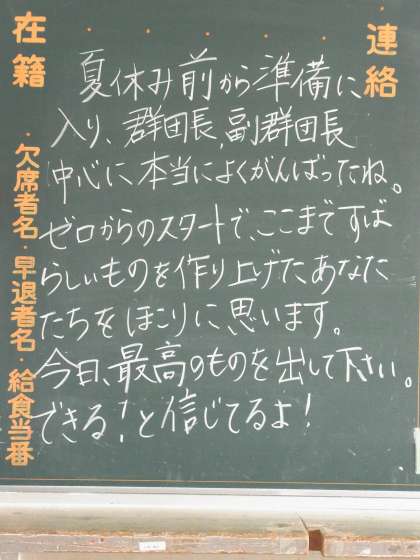 連絡
夏休み前から準備に
入り、群団長,副群団長
中心に、本当によくがんばったね。
ゼロからのスタートで、ここまですば
らしいものを作り上げた、あなた
たちをほこりに思います。
今日、最高のものを出して下さい。
できる!と信じてるよ!
在籍
・欠席者名・早退者名・給食当番